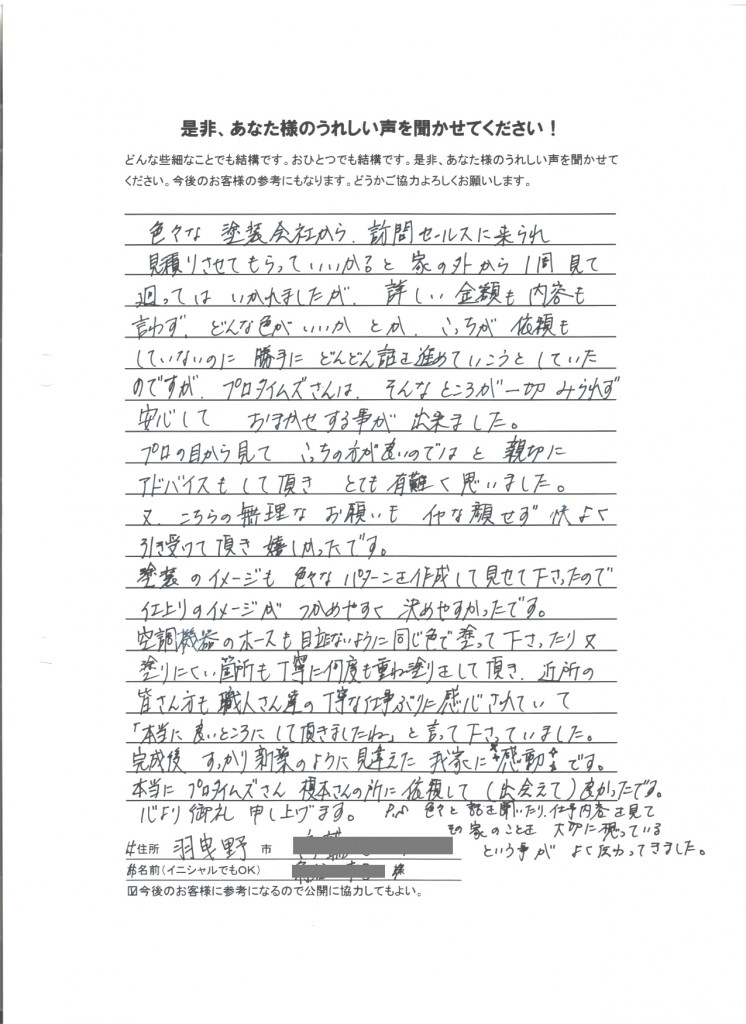 是非、あなた様のうれしい声を聞かせてください！
どんな些細なことでも結構です。おひとつでも結構です。是非、あなた様のうれしい声を聞かせて
ください。今後のお客様の参考にもなります。どうかご協力よろしくお願いします。
色々な 塗装会社から、訪問セールスに来られ
見積りさせてもらっていいかると 家の外から 1周 見て
廻っては いかれましたが、詳しい 金額も 内容も
言わず、どんな色がいいか とか、こっちが 依頼も
していないのに 勝手に どんどん話を進めていこうと していた
のですが、プロタイムズさんは、そんなところが一切 みられず
安心して おまかせする事が 出来ました。
プロの目から見て こっちの方が良いのでは と 親切に
アドバイスも して頂き とても 有難く 思いました。
又、こちらの 無理な お願いも イヤな顔せず 快よく
引き受けて頂き 嬉しかったです。
塗装のイメージも 色々な パターンを作成して見せて下さったので
仕上りのイメージが つかめやすく 決めやすかったです。
空調機器のホースも目立ないように同じ色で塗って下さったり又
塗りにくい箇所も丁寧に何度も重ね塗りをして頂き、近所の
皆さん方も 職人さん達の 丁寧な仕事ぶりに感心されていて
「本当に 良いところに して頂きましたね」と 言って 下さっていました。
完成後 すっかり新築のように 見違えた 我家に 感動 です。
本当に プロタイムズさん 榎本さんの所に 依頼して (出会えて) 良かったです。
心より 御礼 申し上げます。
色々と 話を聞いたり、仕事内容を見て
その家のことを 大切に 思っている
という事が よく伝わってきました。
住所 羽曳野 市
お名前(イニシャルでもOK) 様
☑今後のお客様に参考になるので公開に協力してもよい。